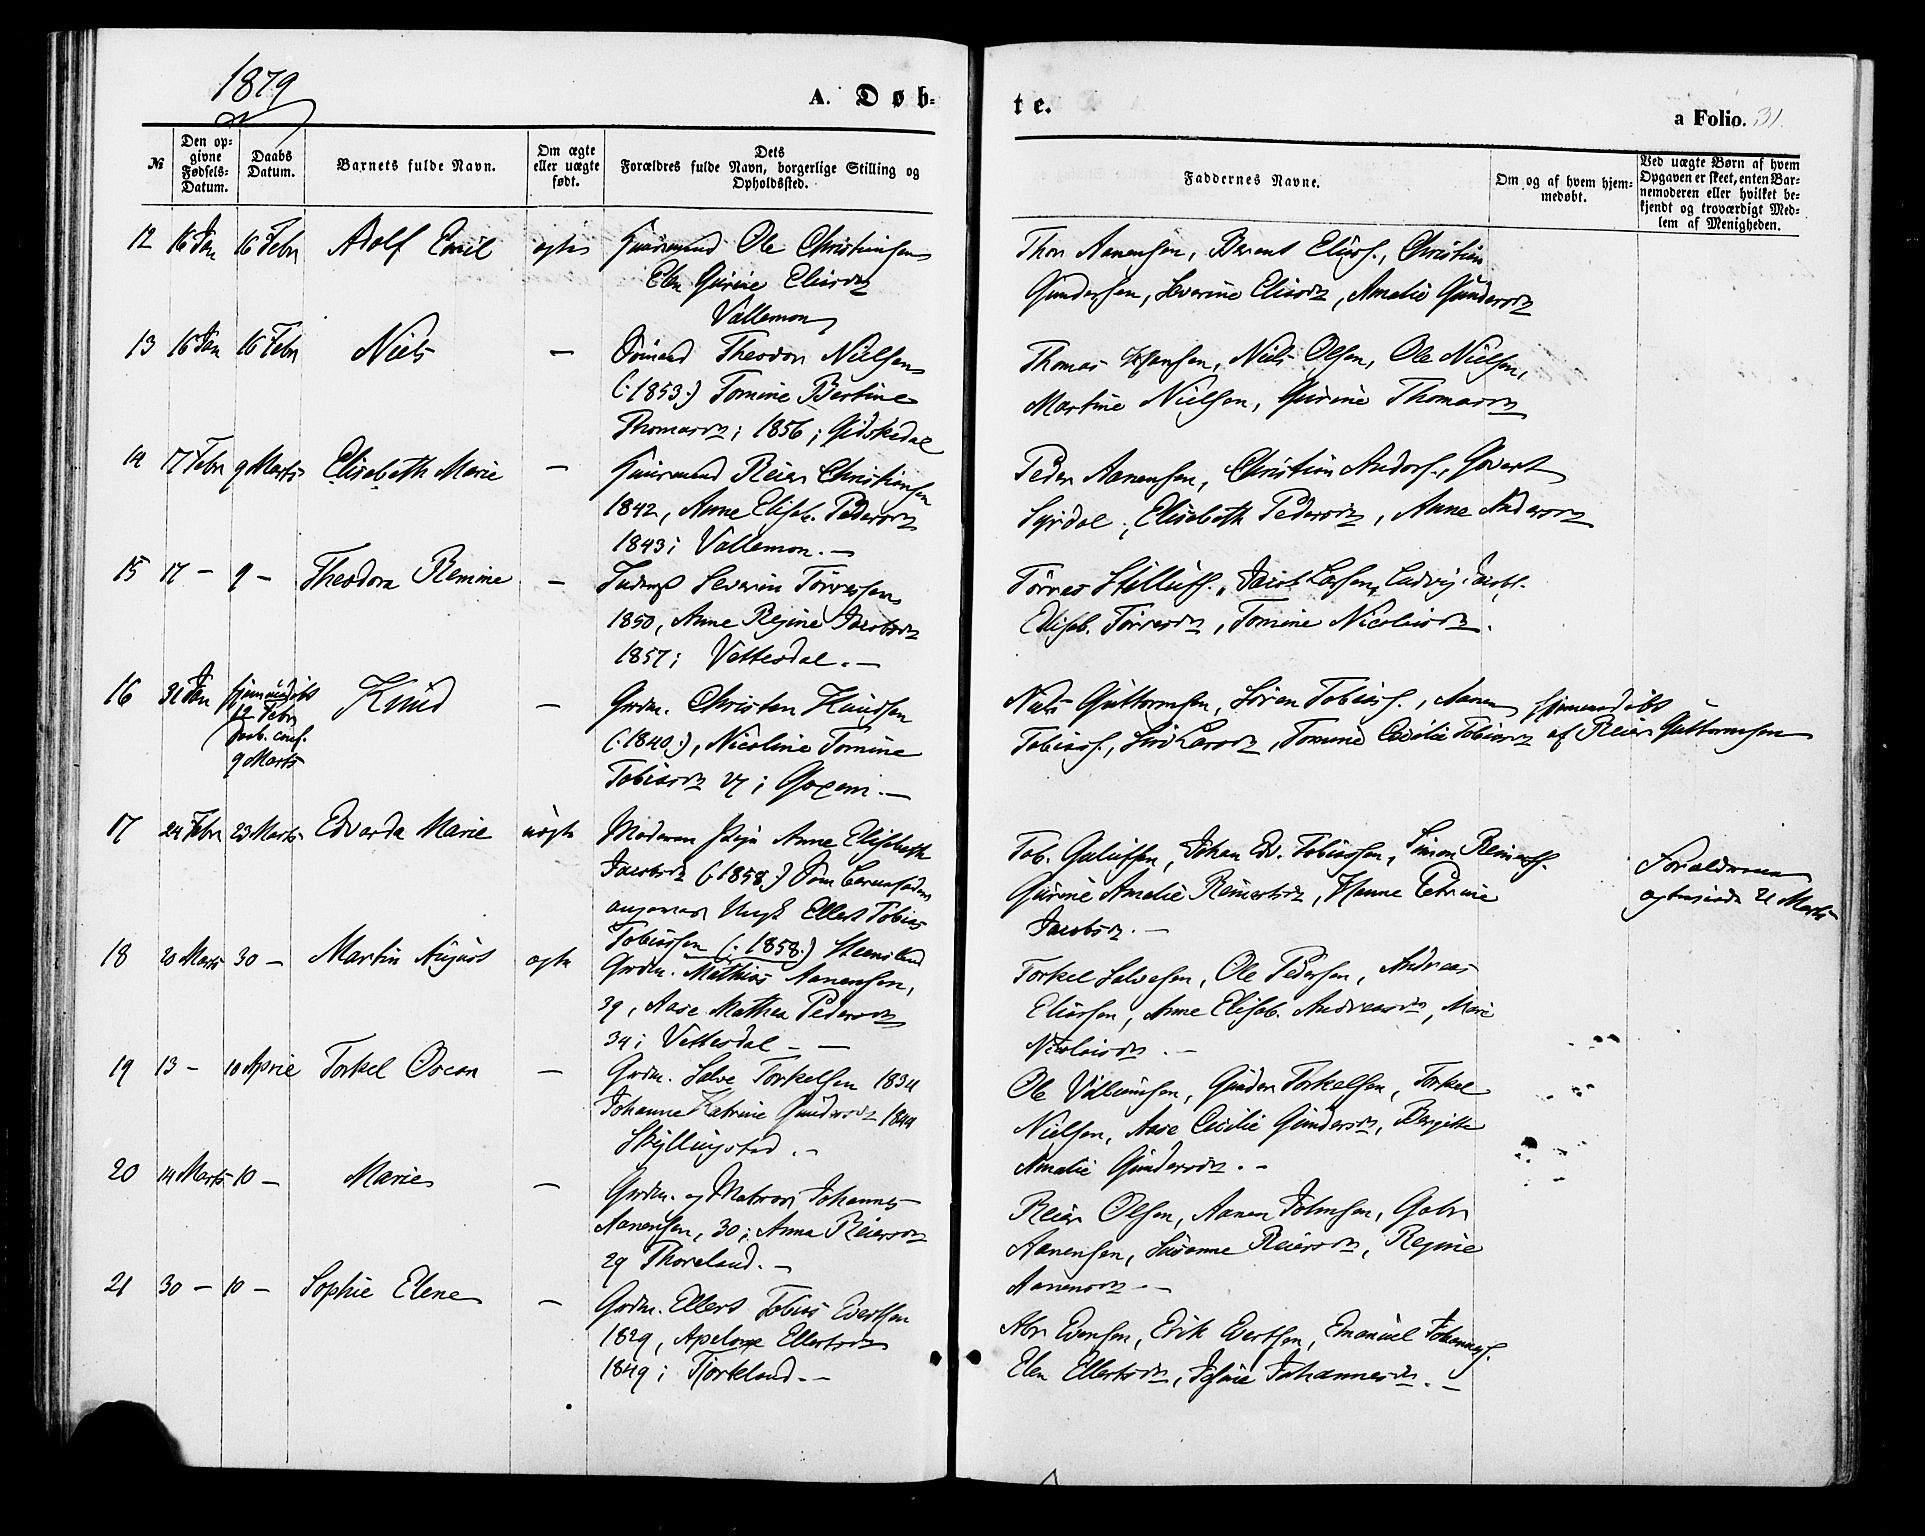 1879
A. Døb-
te.
a Folio. 31.
№
Den op-
givne
Fødsels-
Datum.
Daabs
Datum.
Barnets fulde Navn.
Om ægte
eller uægte
født.
Dets
Forældres fulde Navn, borgerlige Stilling og
Opholdssted.
Faddernes Navne.
Om og af hvem hjem-
medøbt.
Ved uægte Børn af hvem
Opgaven er skeet, enten Bar-
nemoderen eller hvilket be-
kjendt og troværdigt Med-
lem af Menigheden.
12 16 Jan 16 Febr Adolf Emil ægte Huusmand Ole Christiansen
Elen Gurine Eliasdr
Vallemon
Thor Aanensen, Berent Eliass., Christian
Gundersen, Severine Eliasdr, Amalie Gundersdr
13 16 Jan 16 Febr Niels — Theodor Nielsen
(:1853:) Tomine Bertine
Thomasdr; 1856; Gidskedal
Thomas Hansen, Niels Olsen, Ole Nielsen,
Martine Nielsen, Gurine Thomasdr
14 17 Febr 9 Marts Elisabeth Marie — Huusmand Reier Christiansen
1842, Anne Elisab. Pedersdr
1843; Vallemon. —
Peder Aanensen, Christian Anders., Govert
Syrdal, Elisabeth Pedersdr, Anne Andersdr
15 17 — 9 — Theodora Remine — Inderst Severin Tørressen
1850, Anne Regine Jacobsdr
1857; Vettesdal. —
Tørres, Jacob Larsen, Ludvig Jacobs.
Elisab. Tørresdr, Tomine Nicolaisdr.
16 31 Jan hjemmedøbt
12 Febr
Daab. conf.
9 Marts
Knud — Grdm. Christen Knudsen
(:1840:), Nicoline Tomine
Tobiasdr 47; Goxem. —
Niels Guttormsen, Søren Tobiass., Aanen
Tobiass., Siri Larsdr, Tomine Cecilie Tobiasdr
hjemmedøbt
af Reier Guttormsen
17 24 Febr 23 Marts Edvarda Marie uægte Moderen Pige Anne Elisabeth
Jacobsdr (:1858:) Som Barnefader
angives Ungk. Ellert Tobias
Tobiassen (:1858:) Steensland
Tob., Johan Edv. Tobiassen, Simon Reinerts.
Gurine Amalie Reinertsdr, Hanne Petrine
Jacobsdr. —
Forældrene
ægteviede 21 Marts
18 20 Marts 30 — Martin August ægte Grdm. Mathias Aanensen,
39, Aase Mathea Pedersdr
34; Vettesdal — —
Torkel Salvesen, Ole Pedersen, Andreas
Eliassen, Anne Elisab. Andreasdr, Marie
Nicolaisdr. —
19 13 — 10 April Torkel Oscar — Grdm. Salve Torkelsen 1834
Johanne Katrine Gundersdr 1844
Skyllingstad. —
Ole Villumsen, Gunder Torkelsen, Torkel
Nielsen, Aase Cecilie Gundersdr, Birgitte
Amalie Gundersdr. —
20 14 Marts 10 — Marie — Grdm. og Matros Johannes
Aanensen, 30; Anna Reiersdr
29 Thoreland. —
Reier Olsen, Aanen Johnsen, Gabr
Aanensen, Susanne Reiersdr, Regine
Aanensdr —
21 30 — 10 — Sophie Elene — Grdm. Ellert Tobias Evertsen
1829, Apelone Ellertsdr
1849; Tjorkland. —
Abr Evensen, Erik Evertsen, Emanuel Johanness.
Elen Ellertsdr, Johannesdr. —